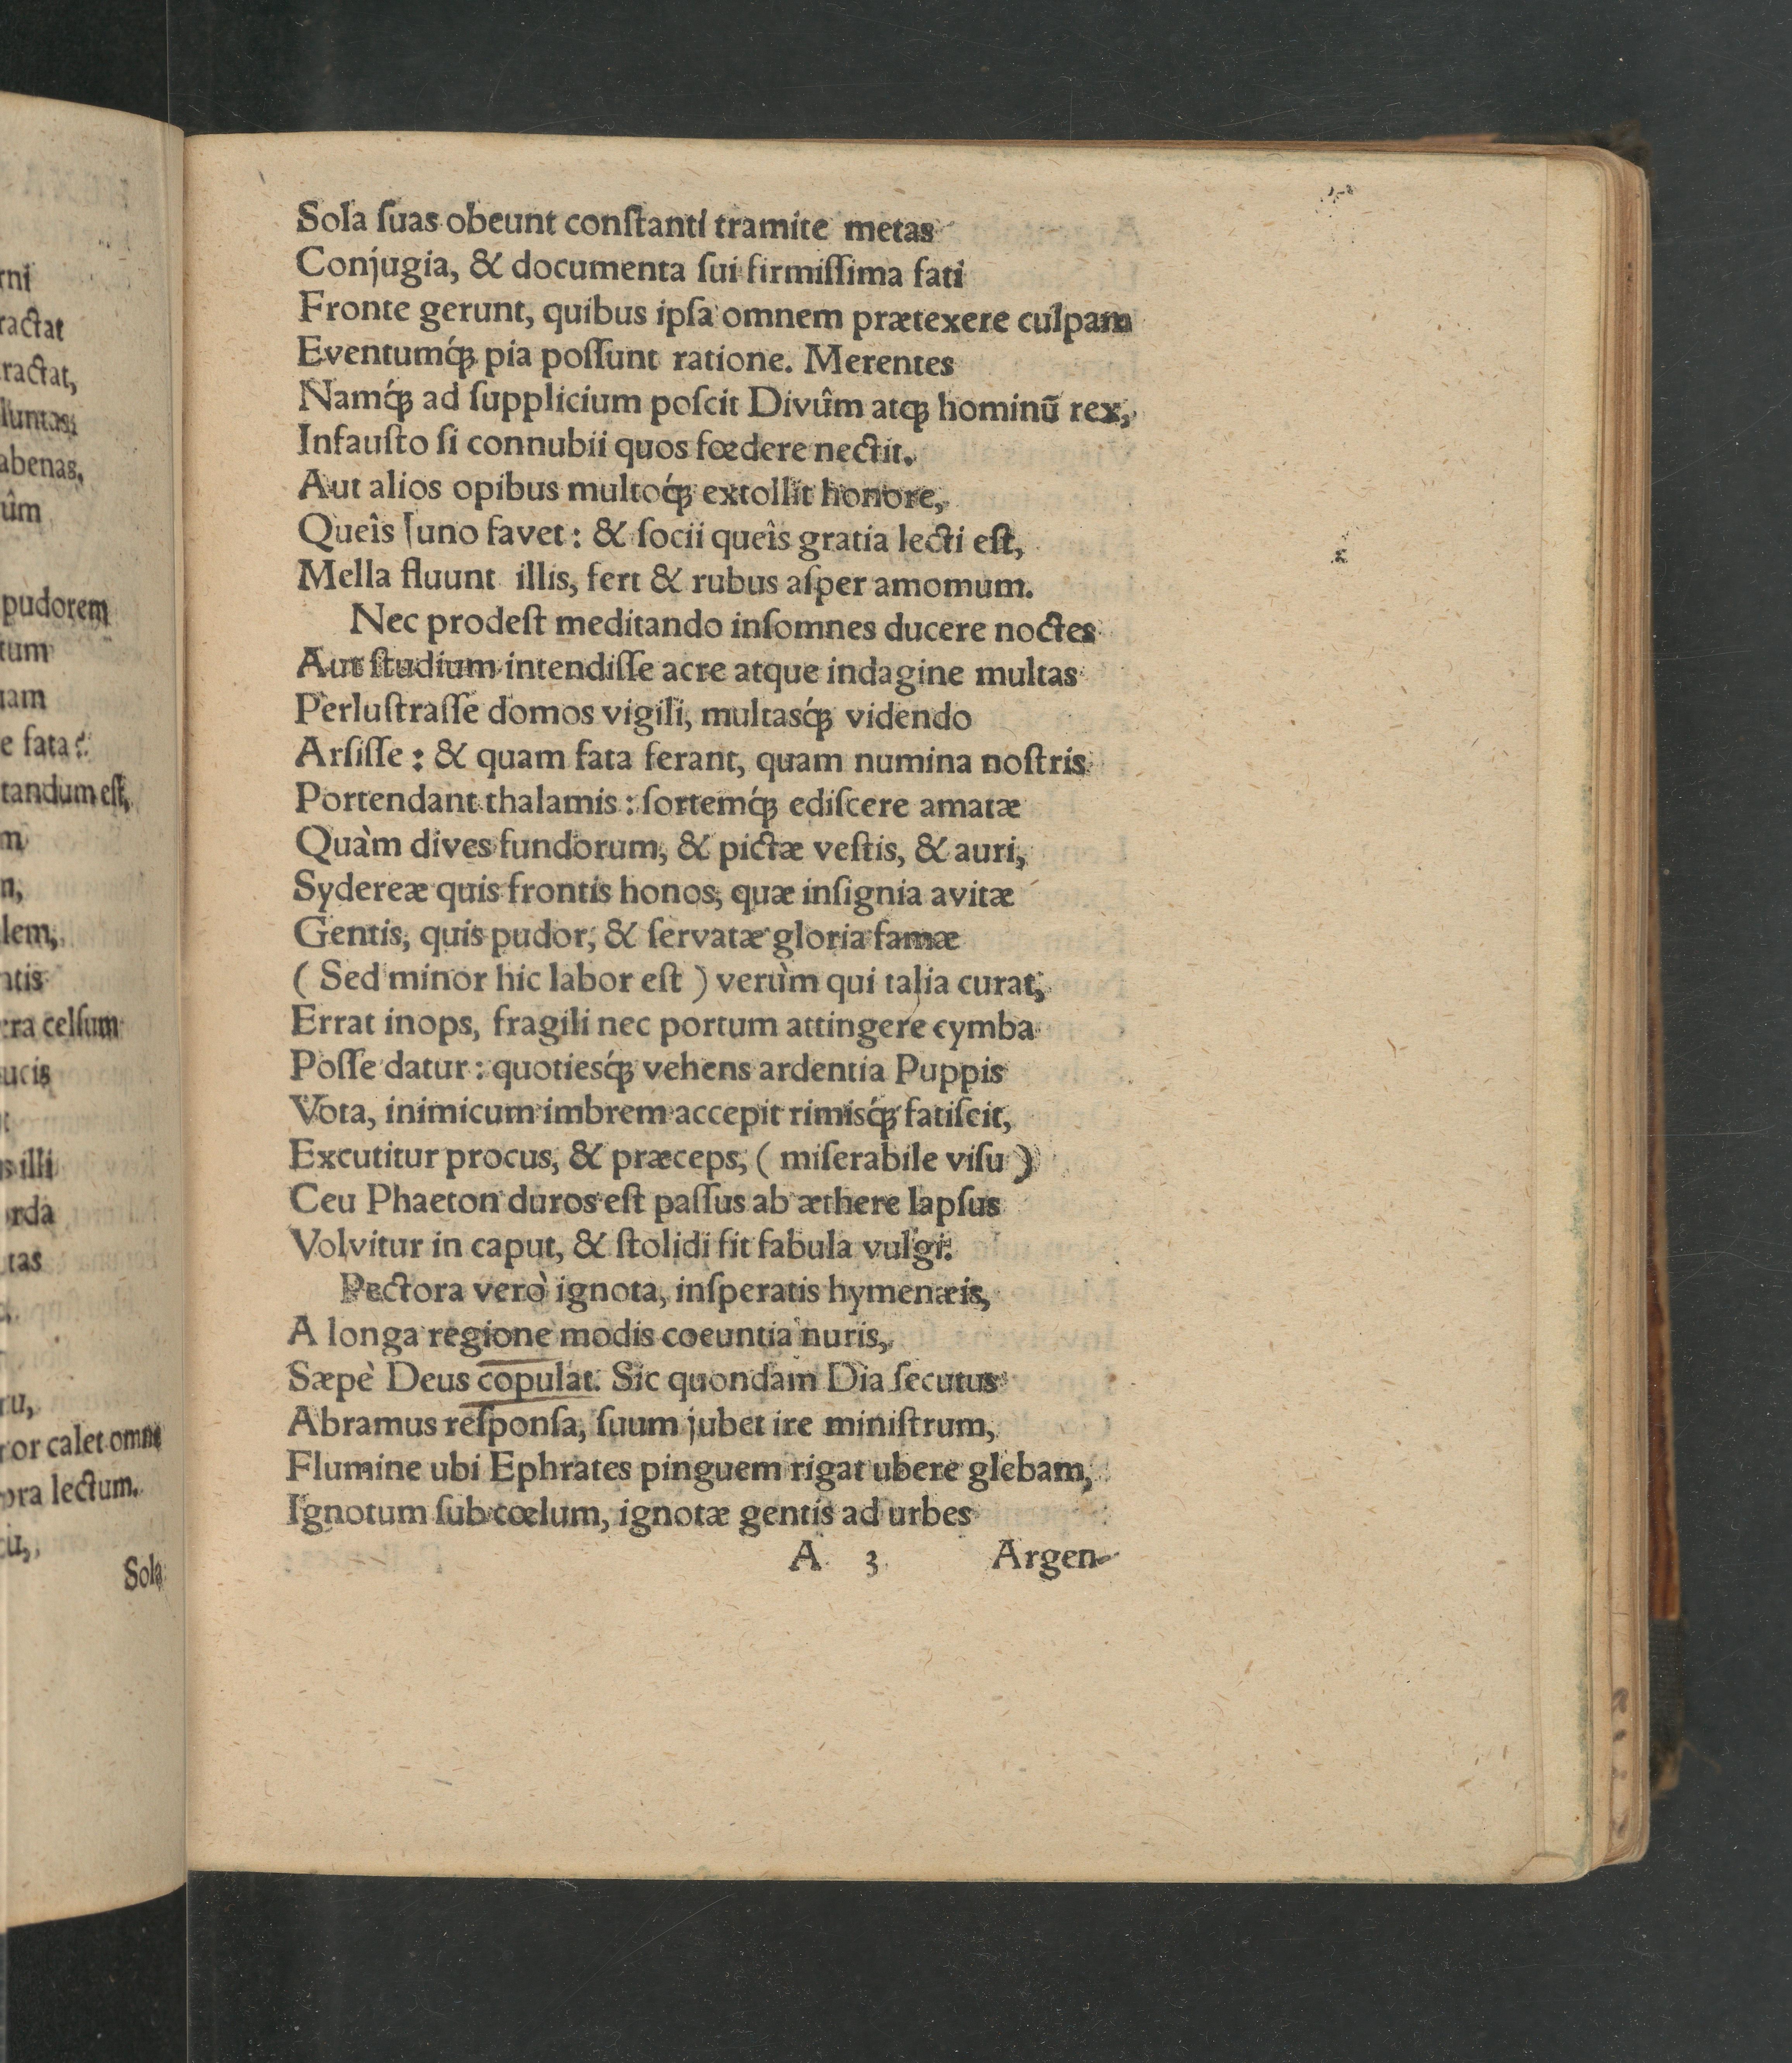 Sola ſuas obeunt conſtanti tramite metas
Conjugia, & documenta ſui firmiſſima fati
Fronte gerunt, quibus ipſa omnem prætexere culpam
Eventumq́ꝫ pia poſſunt ratione. Merentes
Namq́ꝫ ad ſupplicium poſcit Divûm atqꝫ hominū rex,
Infauſto ſi connubii quos fœdere nectit.
Aut alios opibus multoq́ꝫ extollit honore,
Queîs Juno favet: & ſocii queîs gratia lecti eſt,
Mella fluunt illis, fert & rubus aſper amomum.
Nec prodeſt meditando inſomnes ducere noctes
Aut ſtudium intendiſſe acre atque indagine multas
Perluſtraſſe domos vigili, multasq́ꝫ videndo
Arſiſſe: & quam fata ferant, quam numina noſtris
Portendant thalamis: ſortemq́ꝫ ediſcere amatæ
Quàm dives fundorum, & pictæ veſtis, & auri,
Sydereæ quis frontis honos, quæ inſignia avitæ
Gentis, quis pudor, & ſervatæ gloria famæ
( Sed minor hic labor eſt ) verùm qui talia curat,
Errat inops, fragili nec portum attingere cymba
Poſſe datur: quotiesq́ꝫ vehens ardentia Puppis
Vota, inimicum imbrem accepit rimisq́ꝫ fatiſcit,
Excutitur procus, & præceps, ( miſerabile viſu )
Ceu Phaeton duros eſt paſſus ab æthere lapſus
Volvitur in caput, & ſtolidi fit fabula vulgi.
Pectora verò ignota, inſperatis hymenæis,
A longa regione modis coeuntia nuris,
Sæpè Deus copulat. Sic quondam Dia ſecutus
Abramus reſponſa, ſuum jubet ire miniſtrum,
Flumine ubi Ephrates pinguem rigat ubere glebam,
Ignotum ſub cœlum, ignotæ gentis ad urbes
A 3 Argen-
pudorem
e fata?
tandum eſt,
celſum
illi
calet omne
lectum.
Sola